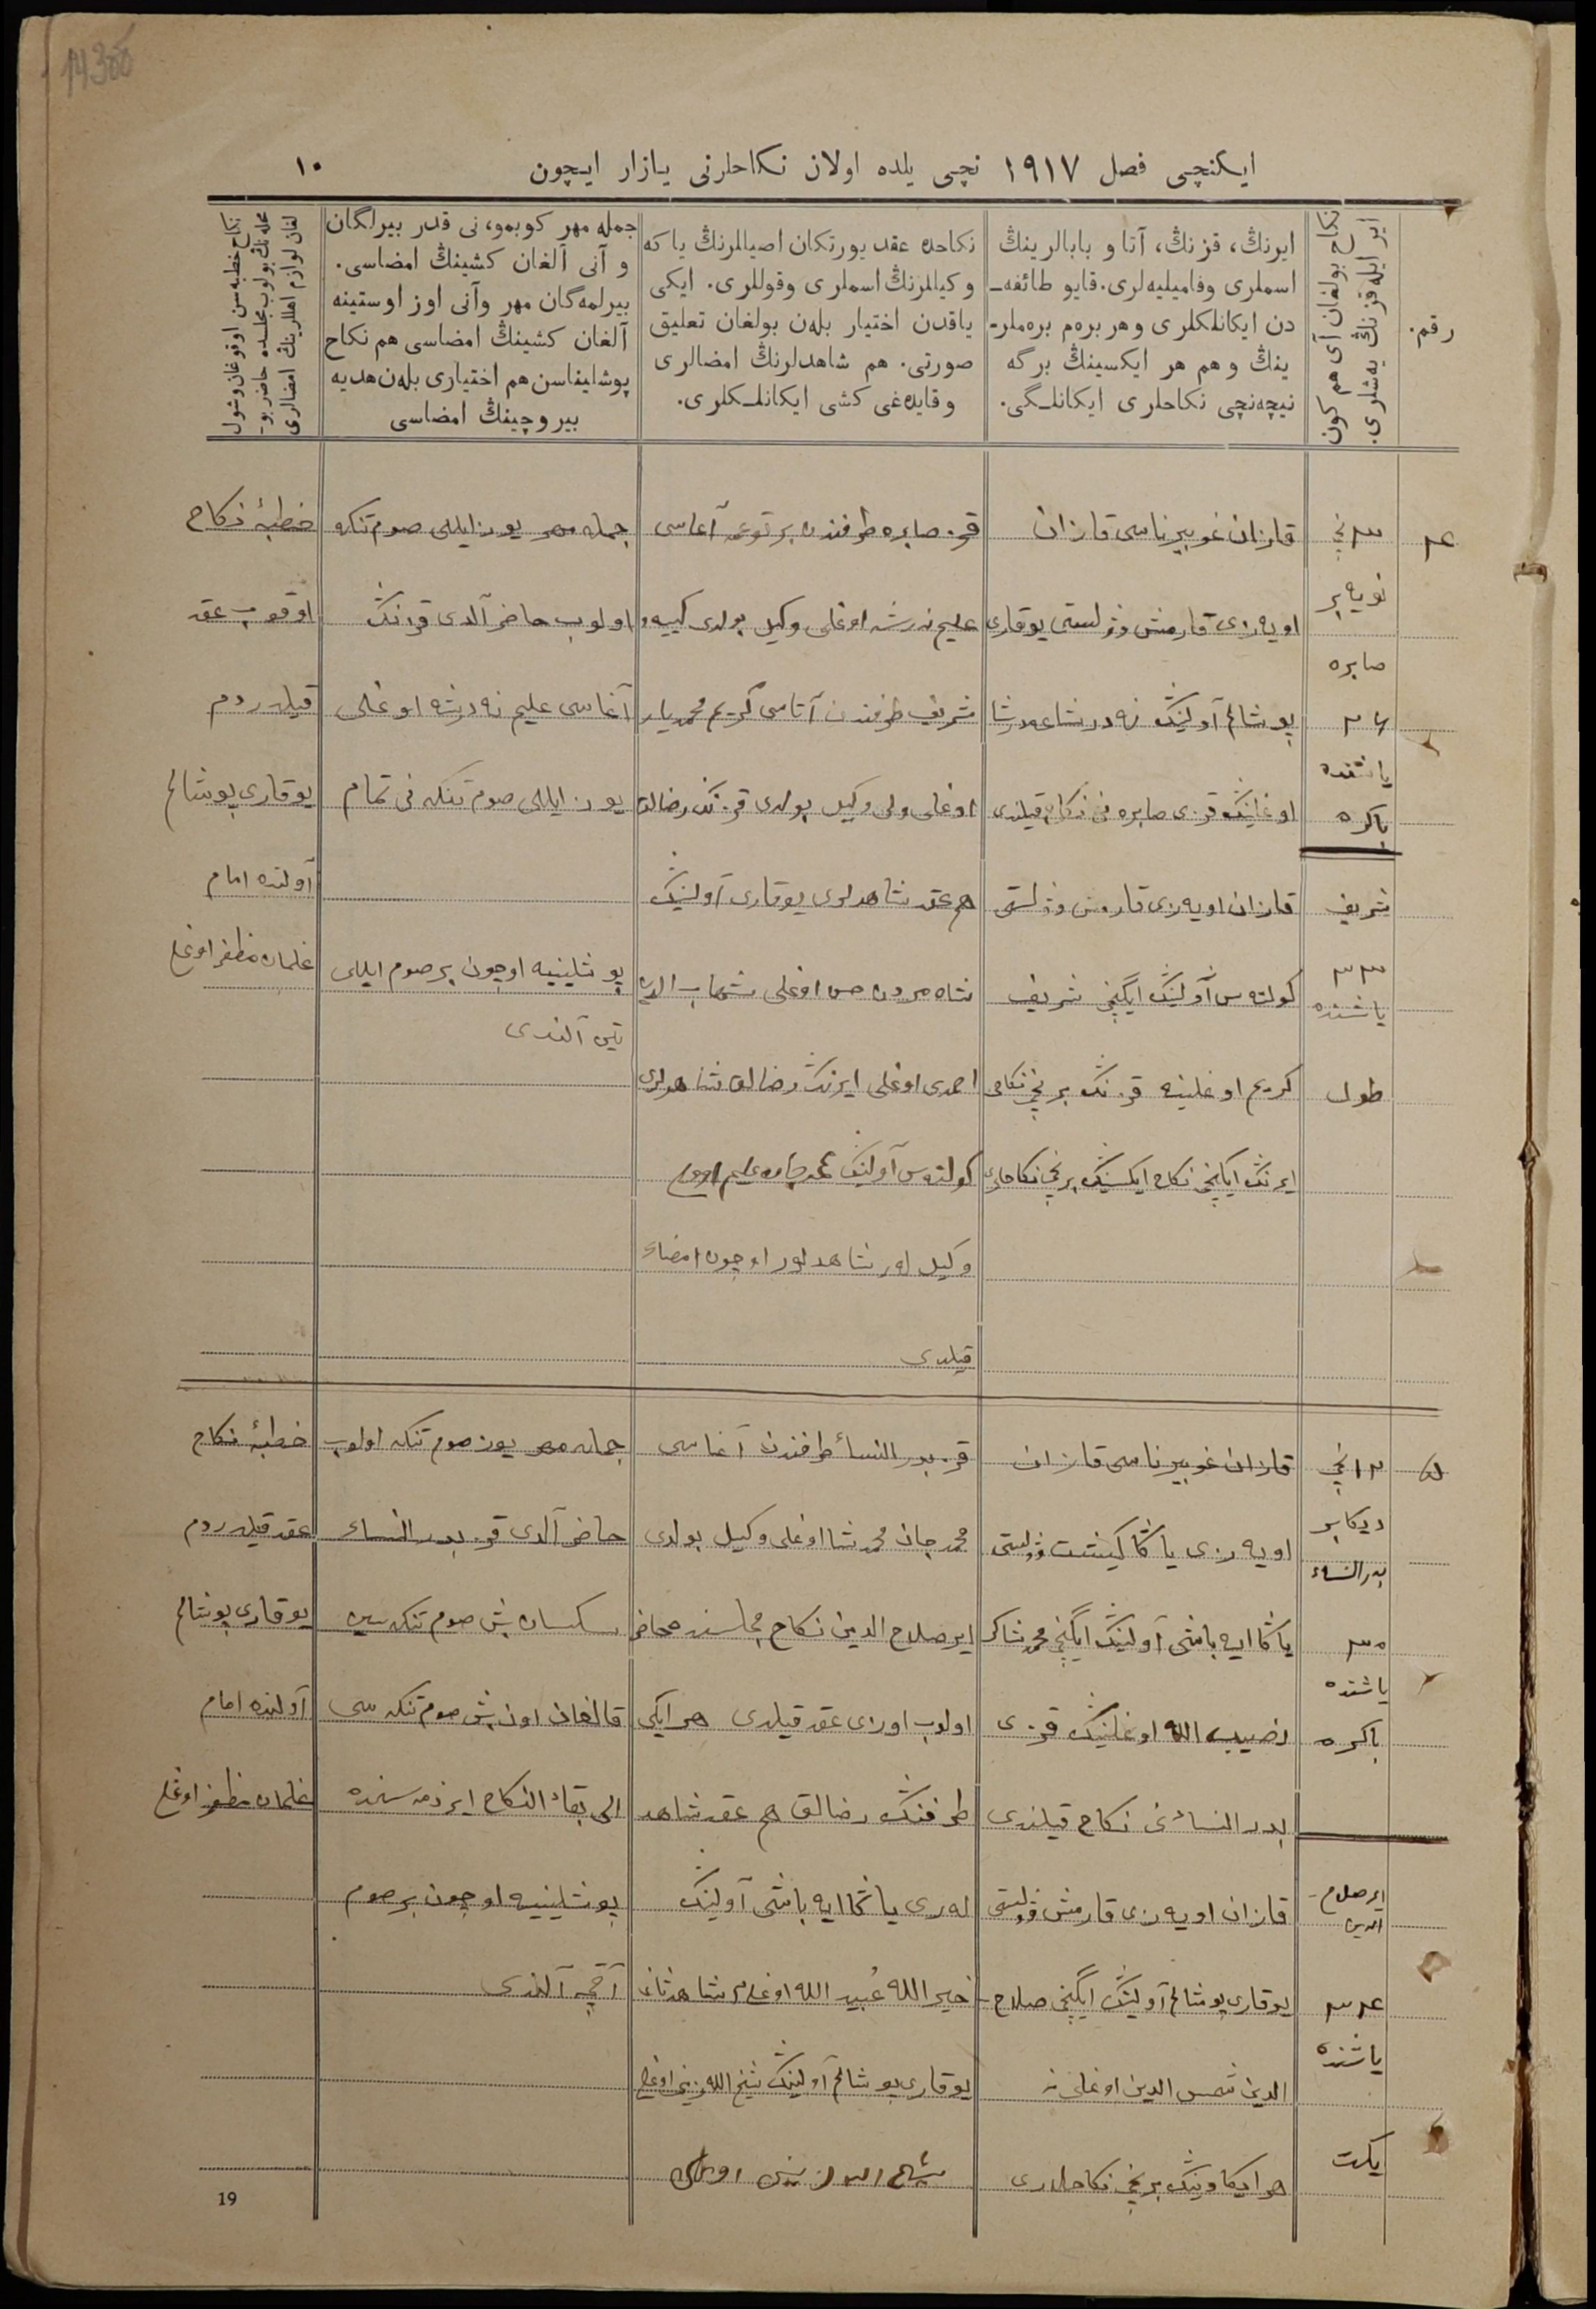 14300
ایکنچی فصل ١٩١٧ نچی یلده اولان نکاحلرنی یازار ایچون
١٠
رقم.
نکاح بولغان آی هم کون
ایر ایله قزنڭ یه‌شلری.
ایرنڭ، قزنڭ، آتا و بابالرینڭ
اسملری وفامیلیه‌لری. قایو طائفه‌ـ
دن ایکانلکلری و هر بره‌م بره‌ملرـ
ینڭ و هم هر ایکسینڭ برگه
نیچه‌نچی نکاحلری ایکانلـگی.
نکاحده عقد یورتکان اصیاللرنڭ یاکه
وکیللرنڭ اسملری وقوللری. ایکی
یاقدن اختیار بله‌ن بولغان تعلیق
صورتی. هم شاهدلرنڭ امضالری
وقایده‌غی کشی ایکانلـکلری.
جمله مهر کوبمو، نی قدر بیرلگان
و آنی آلغان کشینڭ امضاسی.
بیرلمه‌گان مهر وآنی اوز اوستینه
آلغان کشینڭ امضاسی هم نکاح
پوشلیناسن هم اختیاری بله‌ن هدیه
بیروچینڭ امضاسی
نکاح خطبه‌سن اوقوغان وشول
محله‌نڭ بولوب مجلسده حاضر بوـ
لغان لوازم اهللرینڭ امضالری
٤
٣ نچی
نویه‌بر
صابره
٢٦
یاشنده
باکره
شریف
٣٣
یاشنده
طول
قازان غوبیرناسی قازان
اویه‌زی قارمش وولستی یوقاری
پوشالم آولینڭ نه‌درشا عمرشا
اوغلینڭ قزی صابره نی نکاح قیلندی
قازان اویه‌زی قارمش وولستی
کولته‌س آولینڭ ایگنچی شریف
کریم اوغلینه قزنڭ برنچی نکاحی
ایرنڭ ایکنچی نکاح ایکسینڭ برنچی نکاحلری
قز صابره طرفندن برتوغمه آغاسی
علیم نه‌درشه اوغلی وکیل بولدی کییه‌و
شریف طرفندن آتاسی کریم محمدیار
اوغلی ولی وکیل بولدی قزنڭ رضالق
هم عقد شاهدلری یوقاری آولینڭ
شاه‌مردن حسن اوغلی شهاب الدین
احمدی اوغلی ایرنڭ رضالق شاهدلری
کولته‌س آولینڭ محمدجان علیم اوغلی
وکیل لر شاهدلر اوچون امضاء
قیلدی
جمله مهر یوز ایللی صوم تنکه
اولوب حاضر آلدی قزنڭ
آغاسی علیم نه‌درشه اوغلی
یوز ایللی صوم تنکه نی تمام
پوشلینیه اوچون بر صوم ایللی
تین آلندی
خطبهٔ نکاح
اوقوب عقد
قیلدردم
یوقاری پوشالم
آولنده امام
غلمان مظفر اوغلی
٥
١٢ نچی
دیکابر
بدرالنساء
٣٠
یاشنده
باکره
ایر صلاح
الدین
٣٤
یاشنده
یکت
قازان غوبیرناسی قازان
اویه‌زی یاڭا کینشت وولستی
یاڭا ایه باشی آولینڭ ایگنچی محمدشاکر
نصیب الله اوغلینڭ قزی
بدر النساء نی نکاح قیلندی
قازان اویه‌زی قارمش وولستی
یوقاری پوشالم آولینڭ ایگنچی صلاح
الدین شمس الدین اوغلی نه
هر ایکاوینڭ برنچی نکاحلری
قز بدر النساء طرفندن آغاسی
محمدجان محمدشا اوغلی وکیل بولدی
ایر صلاح الدین نکاح مجلسنده حاضر
اولوب اوزی عقد قیلدی هر ایکی
طرفنڭ رضالق هم عقد شاهد
له‌ری یاڭا ایه باشی آولینڭ
خیر الله عُبید الله اوغلی شاهد ثانی
یوقاری پوشالم آولینڭ شیخ الله زینی اوغلی
جمله مهر یوز صوم تنکه اولوب
حاضر آلدی قز بدر النساء
سکسان بش صوم تنکه سین
قالغان اون بش صوم تنکه سی
الی بقاء النکاح ایر ذمه سنده
پوشلینیه اوچون بر صوم
آقچه آلندی
خطبهٔ نکاح
عقد قیلدردم
یوقاری پوشالم
آولنده امام
غلمان مظفر اوغلی
19